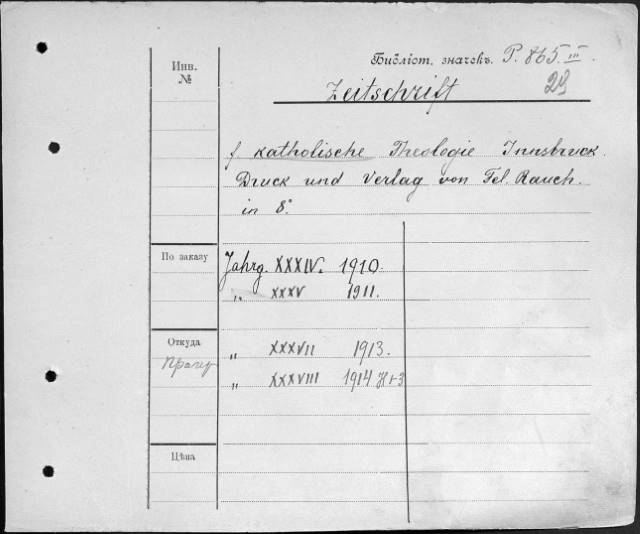 Инв.
№
Библіот. значекъ. P. 865. III.
23
Zeitschrift
f. katholische Theologie Innsbruck.
Druck und Verlag von Fel. Rauch.
in 8.°
По заказу
Jahrg. XXXIV. 1910.
„ XXXV 1911.
Откуда
„ XXXVII 1913.
„ XXXVIII 1914 H 1-3
Цѣна